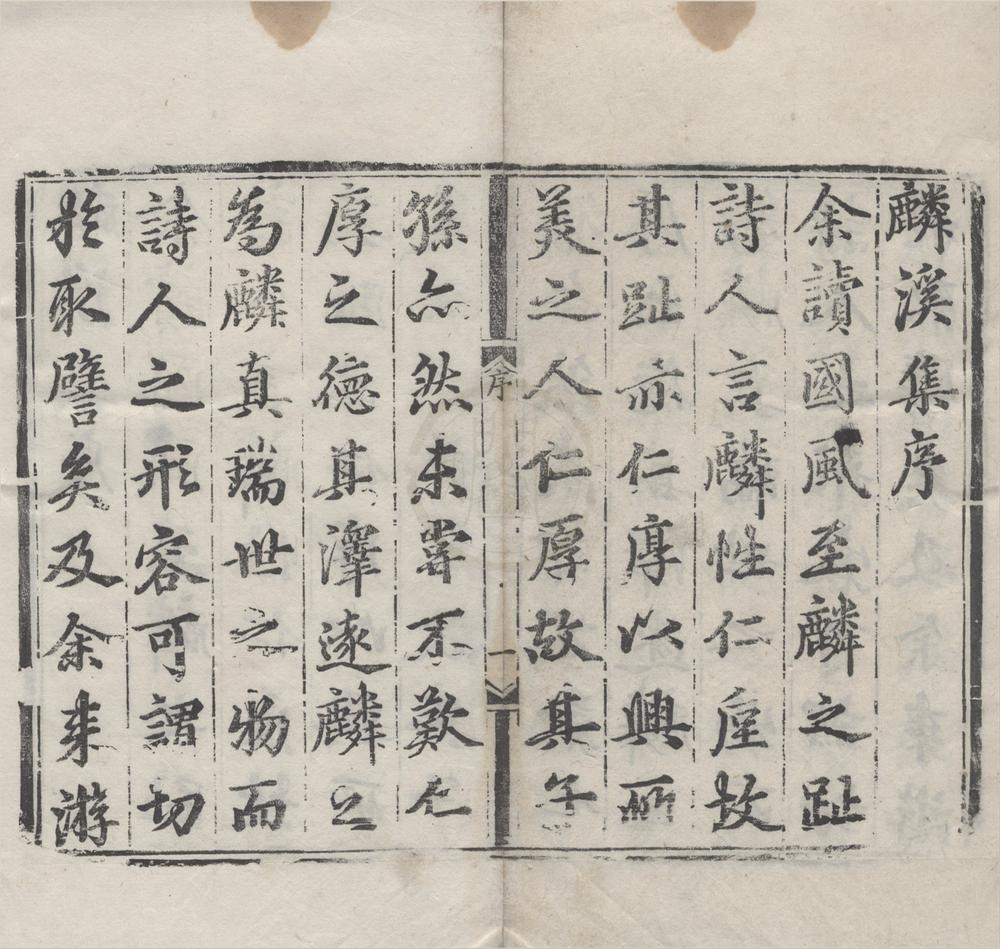 麟溪集序
余讀國風至麟之趾
詩人言麟性仁厚故
其趾亦仁厚以興所
美之人仁厚故其子
序
一
孫亦然未嘗不歎仁
厚之德其澤遠麟之
為麟真瑞世之物而
詩人之形容可謂切
於取譬矣及余來游